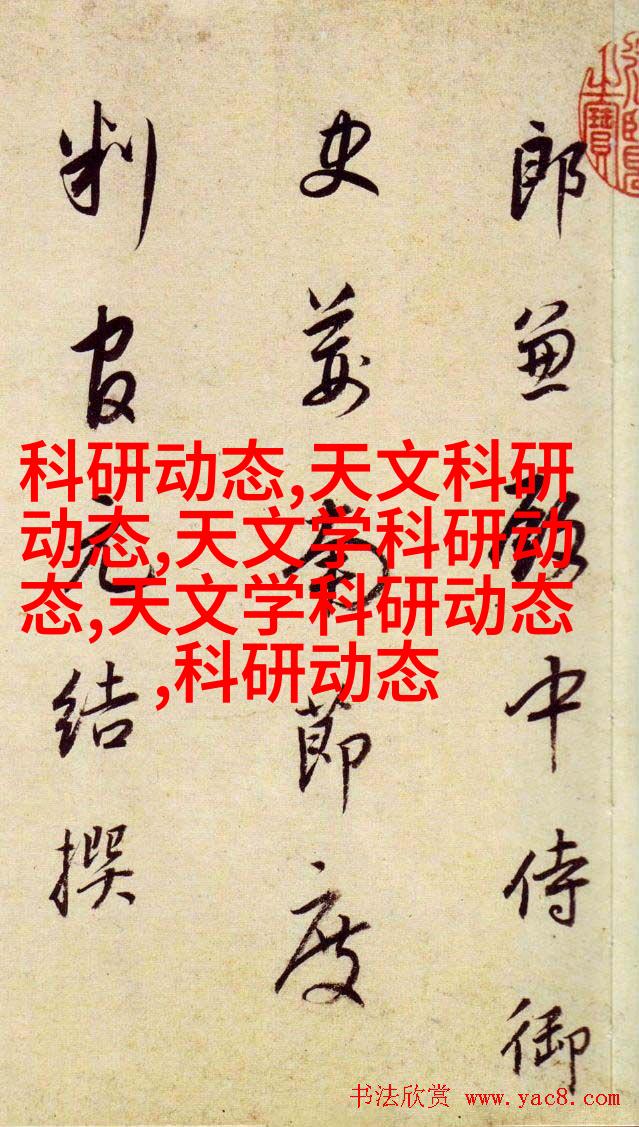 郎兼殿中侍御
史荊南節度
判官元結撰
科研动态,天文科研
动态,天文学科研动
态,天文学科研动态
,科研动态
书法欣赏 www.yac8.com